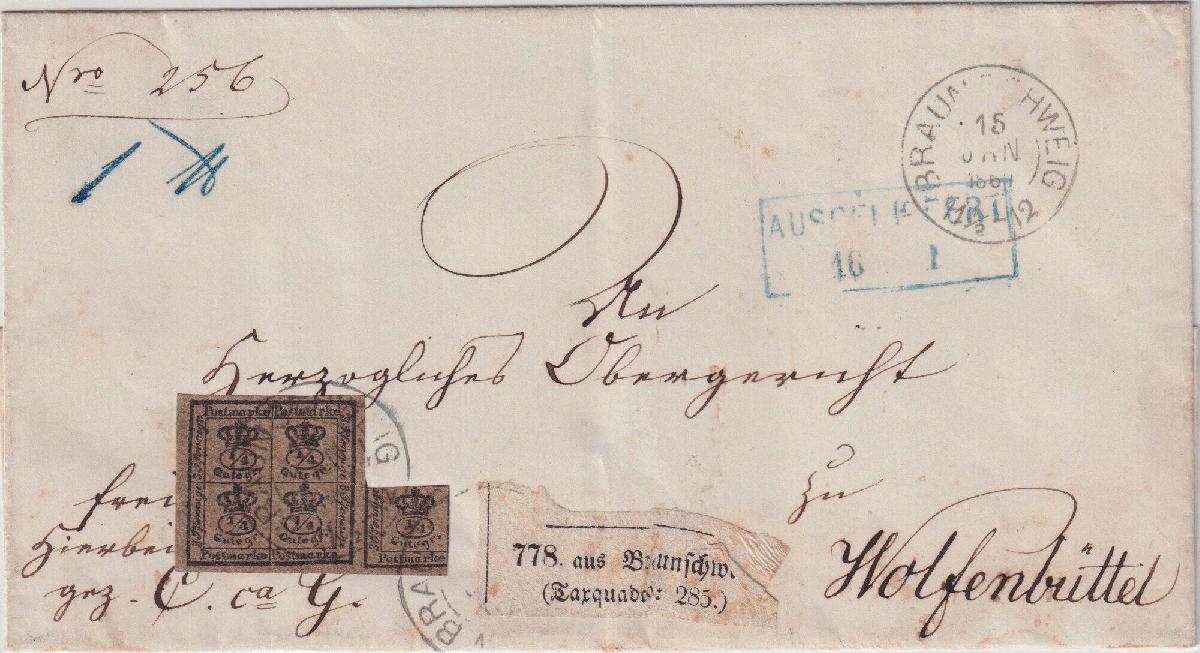 Nro 256
BRAUNSCHWEIG
15
JAN
12
AUSGELIEFERT
16 1
An
Herzogliches Obergericht
zu
Wolfenbüttel
frei
Hierbei
gez. C. ca G.
Postmarke Postmarke
1/4 1/4
Gutegr. Gutegr.
1/4 1/4
Gutegr. Gutegr.
Postmarke Postmarke
3 Pfennige
1/4
Gutegr.
Postmarke
BRA
IG
778. aus Braunschw.
(Taxquadr: 285.)